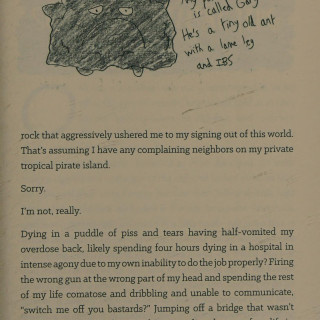 is called Gary
He's a tiny old ant
with a lame leg
and IBS
rock that aggressively ushered me to my signing out of this world.
That's assuming I have any complaining neighbors on my private
tropical pirate island.
Sorry.
I'm not, really.
Dying in a puddle of piss and tears having half-vomited my
overdose back, likely spending four hours dying in a hospital in
intense agony due to my own inability to do the job properly? Firing
the wrong gun at the wrong part of my head and spending the rest
of my life comatose and dribbling and unable to communicate,
"switch me off you bastards?" Jumping off a bridge that wasn't